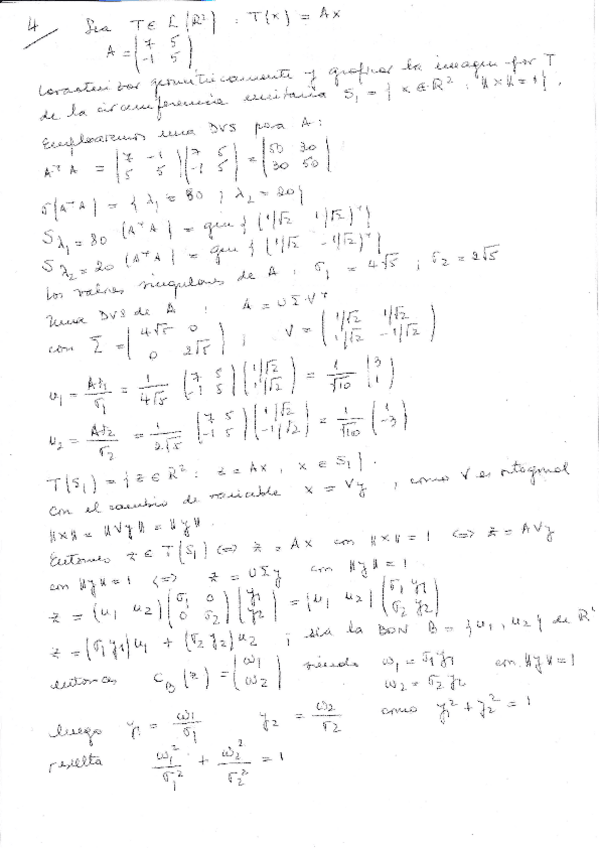 4/ Sea T ∈ L(R²) : T(x) = Ax
A = (7 5; -1 5)
Caracterizar geométricamente y graficar la imagen por T
de la circunferencia unitaria S₁ = { x ∈ R² : ‖x‖ = 1 }.
Emplearemos una DVS para A:
AᵀA = (7 -1; 5 5)(7 5; -1 5) = (50 30; 30 50)
σ(AᵀA) = { λ₁ = 80 ; λ₂ = 20 }
S λ₁ = 80 (AᵀA) = gen { (1/√2 1/√2)ᵀ }
S λ₂ = 20 (AᵀA) = gen { (1/√2 -1/√2)ᵀ }
Los valores singulares de A : σ₁ = 4√5 ; σ₂ = 2√5
Una DVS de A : A = UΣVᵀ
con Σ = (4√5 0; 0 2√5) ; V = (1/√2 1/√2; 1/√2 -1/√2)
u₁ = Av₁/σ₁ = 1/4√5 (7 5; -1 5)(1/√2; 1/√2) = 1/√10 (3; 1)
u₂ = Av₂/σ₂ = 1/2√5 (7 5; -1 5)(1/√2; -1/√2) = 1/√10 (1; -3)
T(S₁) = { z ∈ R² : z = Ax , x ∈ S₁ }.
con el cambio de variable x = Vy , como V es ortogonal
‖x‖ = ‖Vy‖ = ‖y‖.
Entonces z ∈ T(S₁) ⇔ z = Ax con ‖x‖ = 1 ⇔ z = AVy
con ‖y‖ = 1 ⇔ z = UΣy con ‖y‖ = 1
z = (u₁ u₂)(σ₁ 0; 0 σ₂)(y₁; y₂) = (u₁ u₂)(σ₁y₁; σ₂y₂)
z = (σ₁y₁)u₁ + (σ₂y₂)u₂ ; sea la BON B = {u₁, u₂} de R²
entonces C_B(z) = (ω₁; ω₂) siendo ω₁ = σ₁y₁ con ‖y‖ = 1
ω₂ = σ₂y₂
luego y₁ = ω₁/σ₁ y₂ = ω₂/σ₂ como y₁² + y₂² = 1
resulta ω₁²/σ₁² + ω₂²/σ₂² = 1